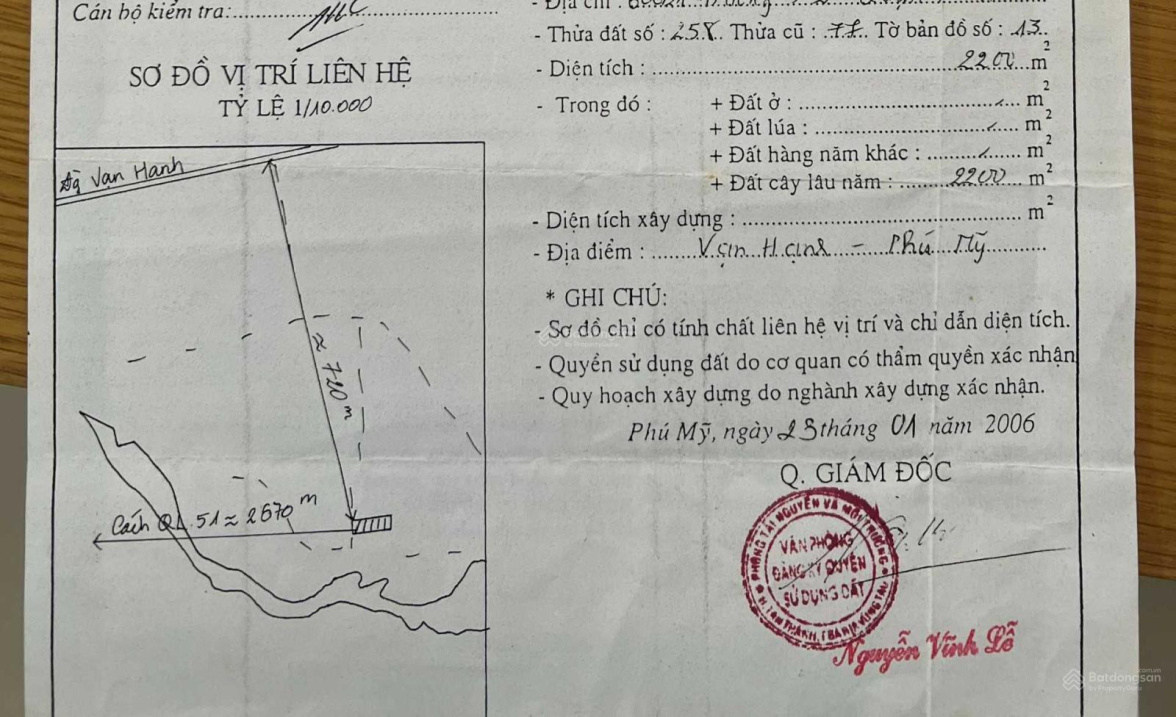 Cán bộ kiểm tra:
- Địa chỉ :
- Thửa đất số : 258. Thửa cũ : 77. Tờ bản đồ số : 13.
- Diện tích : 2200 m²
- Trong đó : + Đất ở : m²
+ Đất lúa : m²
+ Đất hàng năm khác : m²
+ Đất cây lâu năm : 2200 m²
- Diện tích xây dựng : m²
- Địa điểm : Vạn Hạnh - Phú Mỹ
* GHI CHÚ:
- Sơ đồ chỉ có tính chất liên hệ vị trí và chỉ dẫn diện tích.
- Quyền sử dụng đất do cơ quan có thẩm quyền xác nhận
- Quy hoạch xây dựng do nghành xây dựng xác nhận.
Phú Mỹ, ngày 23 tháng 01 năm 2006
Q. GIÁM ĐỐC
PHÒNG TÀI NGUYÊN VÀ MÔI TRƯỜNG
VĂN PHÒNG
ĐĂNG KÝ QUYỀN
SỬ DỤNG ĐẤT
H. TÂN THÀNH, T. BÀ RỊA VŨNG TÀU
Nguyễn Vĩnh Lễ
SƠ ĐỒ VỊ TRÍ LIÊN HỆ
TỶ LỆ 1/10.000
Vạn Hạnh
≈ 720 m
Cách QL.51 ≈ 2670 m
Batdongsan
by PropertyGuru